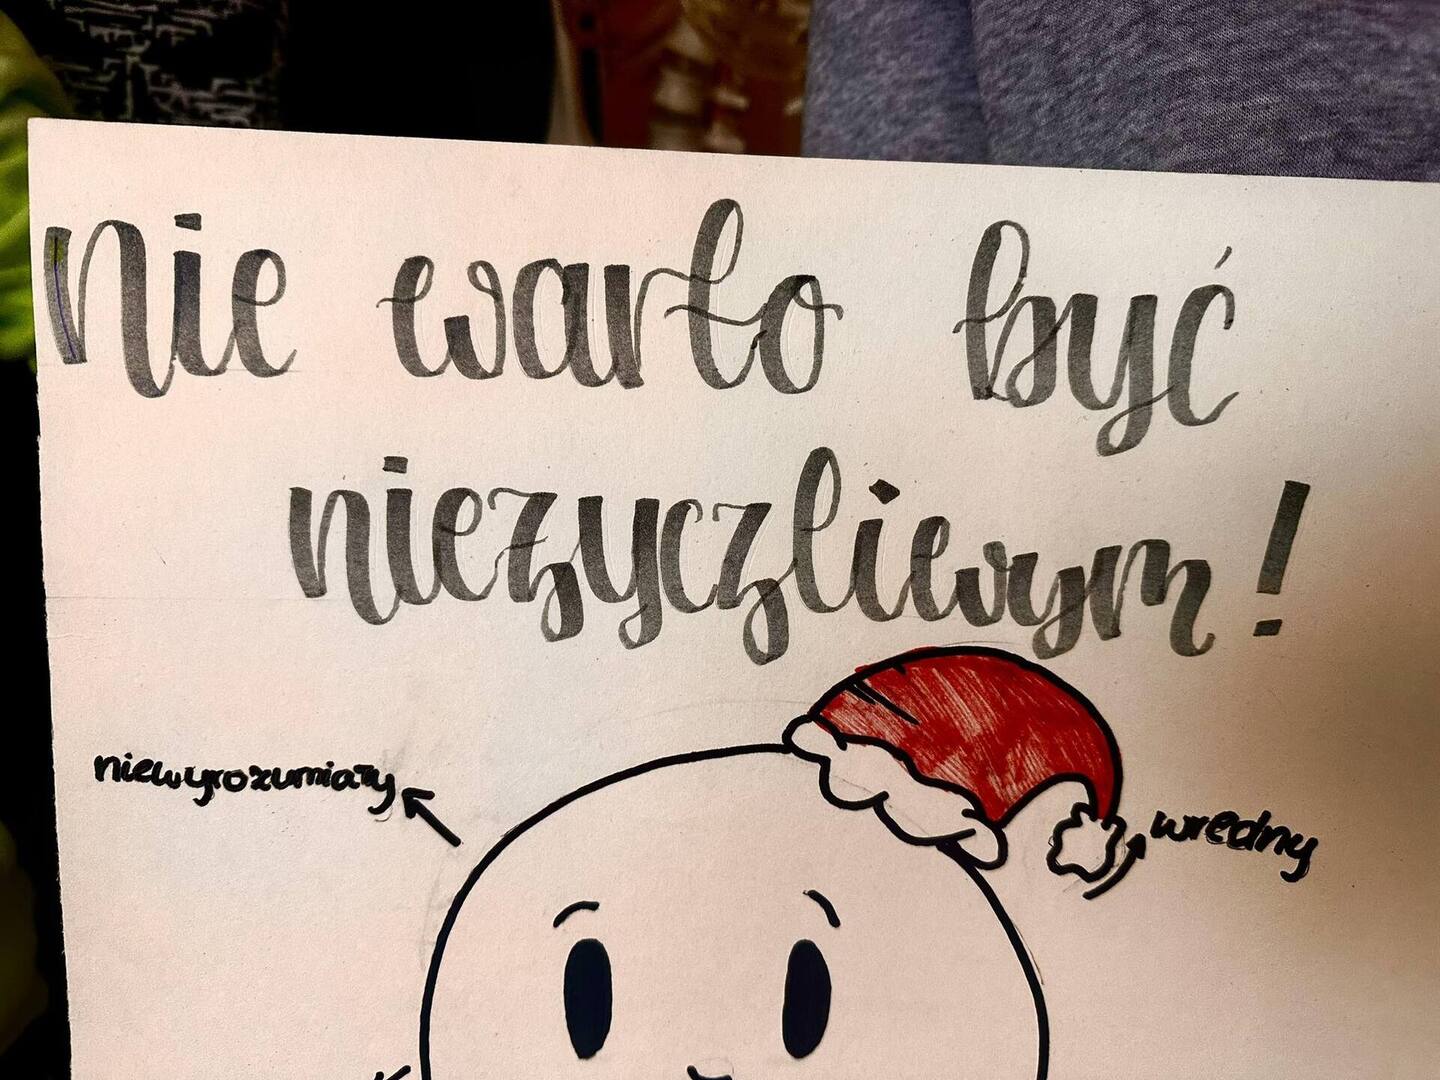 nie warto być
niezyczliwym!
niewyrozumiały
wredny